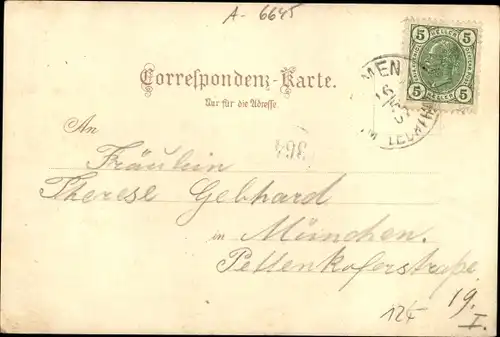 A- 6645
5 HELLER 5
5 HELLER 5
Correspondenz-Karte.
Nur für die Adresse.
An
364
Fräulein
Therese Gebhard
in München.
Pettenkoferstraße
19.
I.